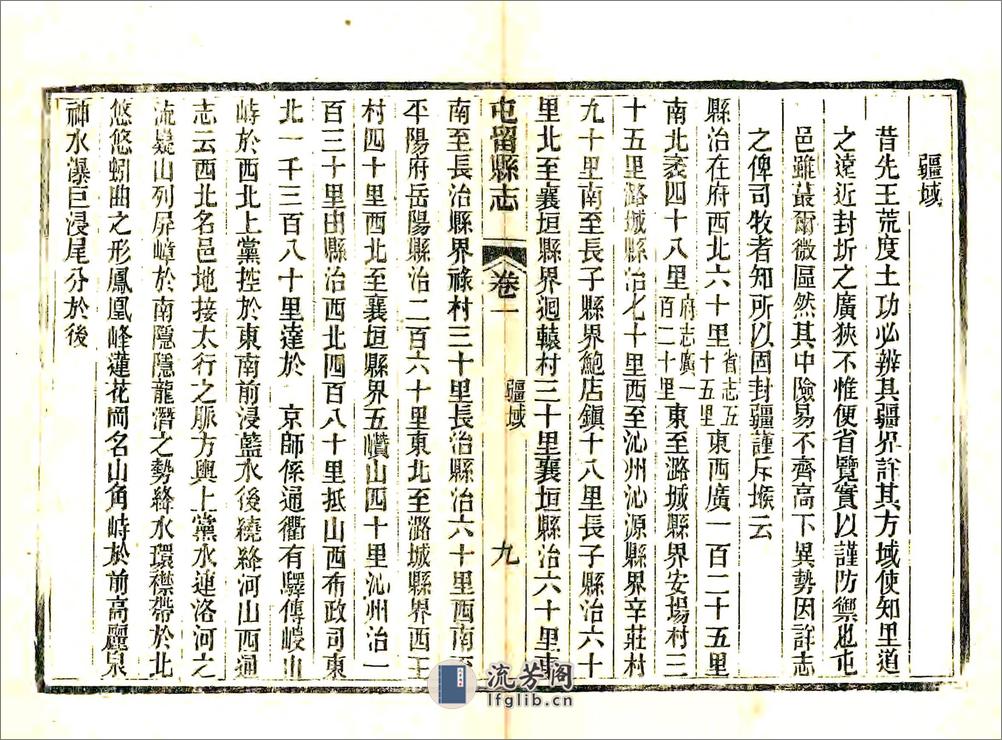 疆域
昔先王荒度土功必辨其疆界詳其方域使知里道
之遠近封圻之廣狹不惟便省覽實以謹防禦也屯
邑雖蕞爾微區然其中險易不齊高下異勢因詳志
之俾司牧者知所以固封疆謹斥堠云
縣治在府西北六十里省志五十五里東西廣一百二十五里
南北袤四十八里府志廣一百二十里東至潞城縣界安場村三
十五里潞城縣治七十里西至沁州沁源縣界幸莊村
九十里南至長子縣界鮑店鎮十八里長子縣治六十
里北至襄垣縣界迴轅村三十里襄垣縣治六十里東
屯留縣志 卷一 疆域 九
南至長治縣界祿村三十里長治縣治六十里西南至
平陽府岳陽縣治二百六十里東北至潞城縣界西王
村四十里西北至襄垣縣界五巑山四十里沁州治一
百三十里由縣治西北四百八十里抵山西布政司東
北一千三百八十里達於 京師係通衢有驛傳嶷山
峙於西北上黨控於東南前浸藍水後繞絳河山西通
志云西北名邑地接太行之脈方輿上黨水連洛河之
流嶷山列屏嶂於南隱隱龍潛之勢絳水環襟帶於北
悠悠蚓曲之形鳳凰峰蓮花岡名山角峙於前高麗泉
神水瀑巨浸尾分於後
流芳閣
lfglib.cn